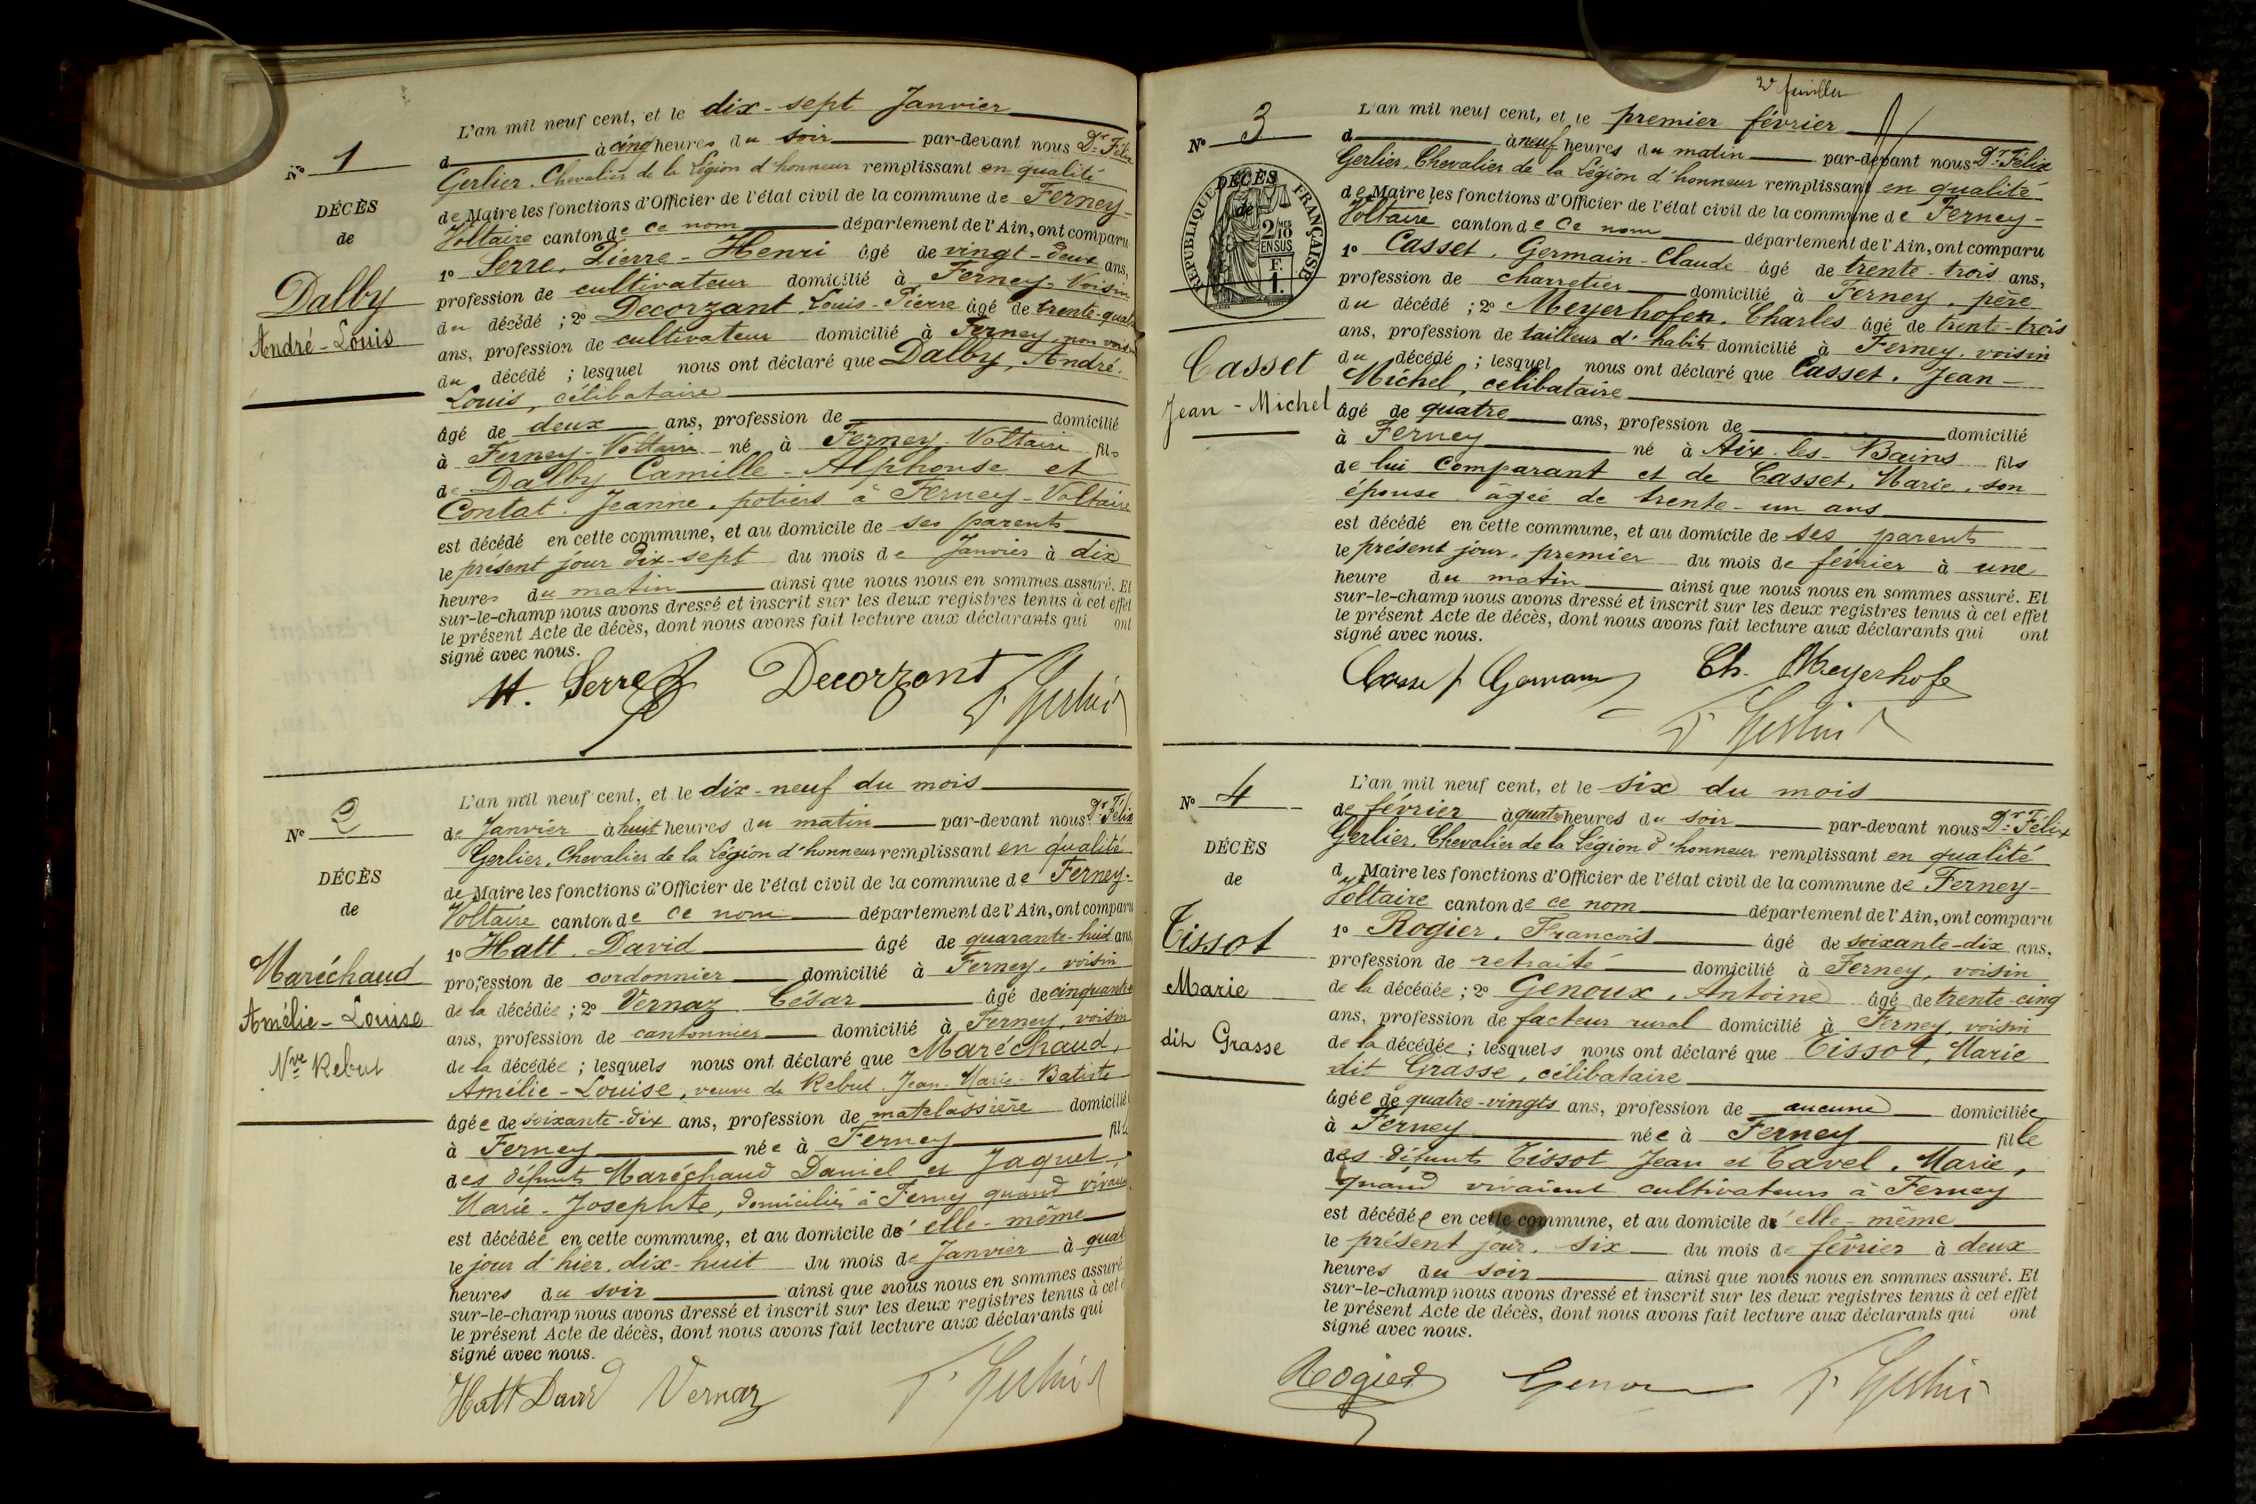 N° 1
DÉCÈS
de
Dalby
André-Louis
L'an mil neuf cent, et le dix-sept Janvier
d à cinq heures du soir par-devant nous Dr Félix
Gerlier, Chevalier de la Légion d'honneur remplissant en qualité
de Maire les fonctions d'Officier de l'état civil de la commune de Ferney-
Voltaire canton de ce nom département de l'Ain, ont comparu
1° Serre, Pierre-Henri âgé de vingt-deux ans,
profession de cultivateur domicilié à Ferney-Voisin
du décédé ; 2° Decorzant Louis-Pierre âgé de trente-quatre
ans, profession de cultivateur domicilié à Ferney, non voisin
du décédé ; lesquel nous ont déclaré que Dalby, André-
Louis, célibataire
âgé de deux ans, profession de domicilié
à Ferney-Voltaire né à Ferney-Voltaire fils
de Dalby Camille-Alphonse et
Contat Jeanne, potiers à Ferney-Voltaire
est décédé en cette commune, et au domicile de ses parents
le présent jour dix-sept du mois de Janvier à dix
heures du matin ainsi que nous nous en sommes assuré. Et
sur-le-champ nous avons dressé et inscrit sur les deux registres tenus à cet effet
le présent Acte de décès, dont nous avons fait lecture aux déclarants qui ont
signé avec nous.
H. Serre Decorzant F. Gerlier
N° 2
DÉCÈS
de
Maréchaud
Amélie-Louise
Vve Rebut
L'an mil neuf cent, et le dix-neuf du mois
de Janvier à huit heures du matin par-devant nous Dr Félix
Gerlier, Chevalier de la Légion d'honneur remplissant en qualité
de Maire les fonctions d'Officier de l'état civil de la commune de Ferney-
Voltaire canton de ce nom département de l'Ain, ont comparu
1° Hatt, David âgé de quarante-huit ans,
profession de cordonnier domicilié à Ferney, voisin
de la décédée ; 2° Vernaz César âgé de cinquante
ans, profession de cantonnier domicilié à Ferney, voisin
de la décédée ; lesquels nous ont déclaré que Maréchaud,
Amélie-Louise, veuve de Rebut Jean-Marie-Batiste
âgée de soixante-dix ans, profession de matelassière domicilié
à Ferney née à Ferney fille
des défunts Maréchaud Daniel et Jaquet
Marie-Josephte, domiciliés à Ferney quand vivaient
est décédée en cette commune, et au domicile d'elle-même
le jour d'hier, dix-huit du mois de Janvier à quat
heures du soir ainsi que nous nous en sommes assuré
sur-le-champ nous avons dressé et inscrit sur les deux registres tenus à cet e
le présent Acte de décès, dont nous avons fait lecture aux déclarants qui
signé avec nous.
Hatt David Vernaz F. Gerlier
2e feuillet
N° 3
RÉPUBLIQUE FRANÇAISE
2/10 EN SUS
F. 1.
DÉCÈS
de
Casset
Jean-Michel
L'an mil neuf cent, et le premier février
d à neuf heures du matin par-devant nous Dr Félix
Gerlier, Chevalier de la Légion d'honneur remplissant en qualité
de Maire les fonctions d'Officier de l'état civil de la commune de Ferney-
Voltaire canton de ce nom département de l'Ain, ont comparu
1° Casset, Germain-Claude âgé de trente-trois ans,
profession de charretier domicilié à Ferney, père
du décédé ; 2° Meyerhofen, Charles âgé de trente-trois
ans, profession de tailleur d'habits domicilié à Ferney, voisin
du décédé ; lesquel nous ont déclaré que Casset, Jean-
Michel, célibataire
âgé de quatre ans, profession de domicilié
à Ferney né à Aix-les-Bains fils
de lui comparant et de Casset, Marie, son
épouse âgée de trente-un ans
est décédé en cette commune, et au domicile de ses parents
le présent jour, premier du mois de février à une
heure du matin ainsi que nous nous en sommes assuré. Et
sur-le-champ nous avons dressé et inscrit sur les deux registres tenus à cet effet
le présent Acte de décès, dont nous avons fait lecture aux déclarants qui ont
signé avec nous.
Casset Germain Ch. Meyerhofe
F. Gerlier
N° 4
DÉCÈS
de
Tissot
Marie
dit Grasse
L'an mil neuf cent, et le six du mois
de février à quatre heures du soir par-devant nous Dr Félix
Gerlier, Chevalier de la Légion d'honneur remplissant en qualité
d Maire les fonctions d'Officier de l'état civil de la commune de Ferney-
Voltaire canton de ce nom département de l'Ain, ont comparu
1° Rogier, François âgé de soixante-dix ans,
profession de retraité domicilié à Ferney, voisin
de la décédée ; 2° Genoux, Antoine âgé de trente-cinq
ans, profession de facteur rural domicilié à Ferney, voisin
de la décédée ; lesquels nous ont déclaré que Tissot, Marie
dit Grasse, célibataire
âgée de quatre-vingts ans, profession de aucune domiciliée
à Ferney née à Ferney fille
des défunts Tissot Jean et Tavel, Marie,
quand vivaient cultivateurs à Ferney
est décédée en cette commune, et au domicile d'elle-même
le présent jour, six du mois de février à deux
heures du soir ainsi que nous nous en sommes assuré. Et
sur-le-champ nous avons dressé et inscrit sur les deux registres tenus à cet effet
le présent Acte de décès, dont nous avons fait lecture aux déclarants qui ont
signé avec nous.
Rogier Genoux F. Gerlier